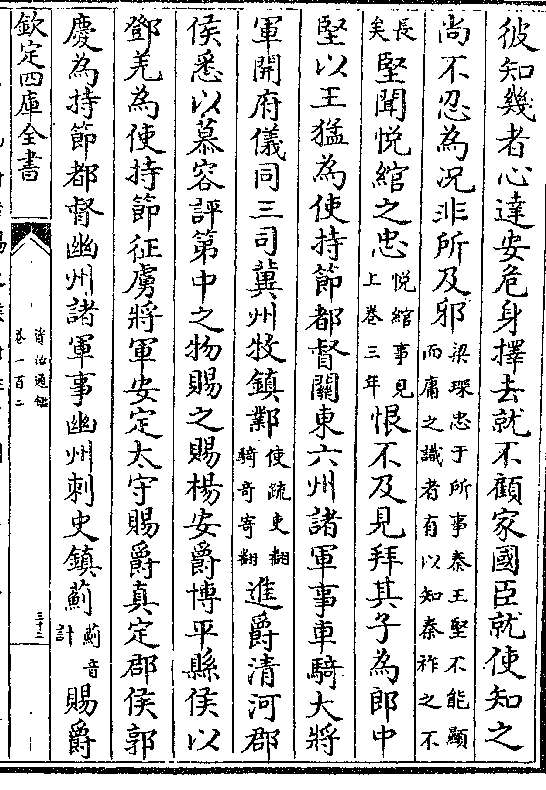 彼知幾者心達安危身擇去就不顧家國臣就使知之
尚不忍為况非所及邪梁琛忠于所事秦王堅不能顯
而庸之識者有以知秦祚之不
長
矣堅聞悅綰之忠悅綰事見
上卷三年恨不及見拜其子為郎中
堅以王猛為使持節都督關東六州諸軍事車騎大將
軍開府儀同三司冀州牧鎮鄴使疏吏翻
騎奇寄翻進爵清河郡
侯悉以慕容評第中之物賜之賜楊安爵博平縣侯以
鄧羌為使持節征虜將軍安定太守賜爵真定郡侯郭
慶為持節都督幽州諸軍事幽州刺史鎮薊薊音
計賜爵
欽定四庫全書
資治通鑑
卷一百二
三十二